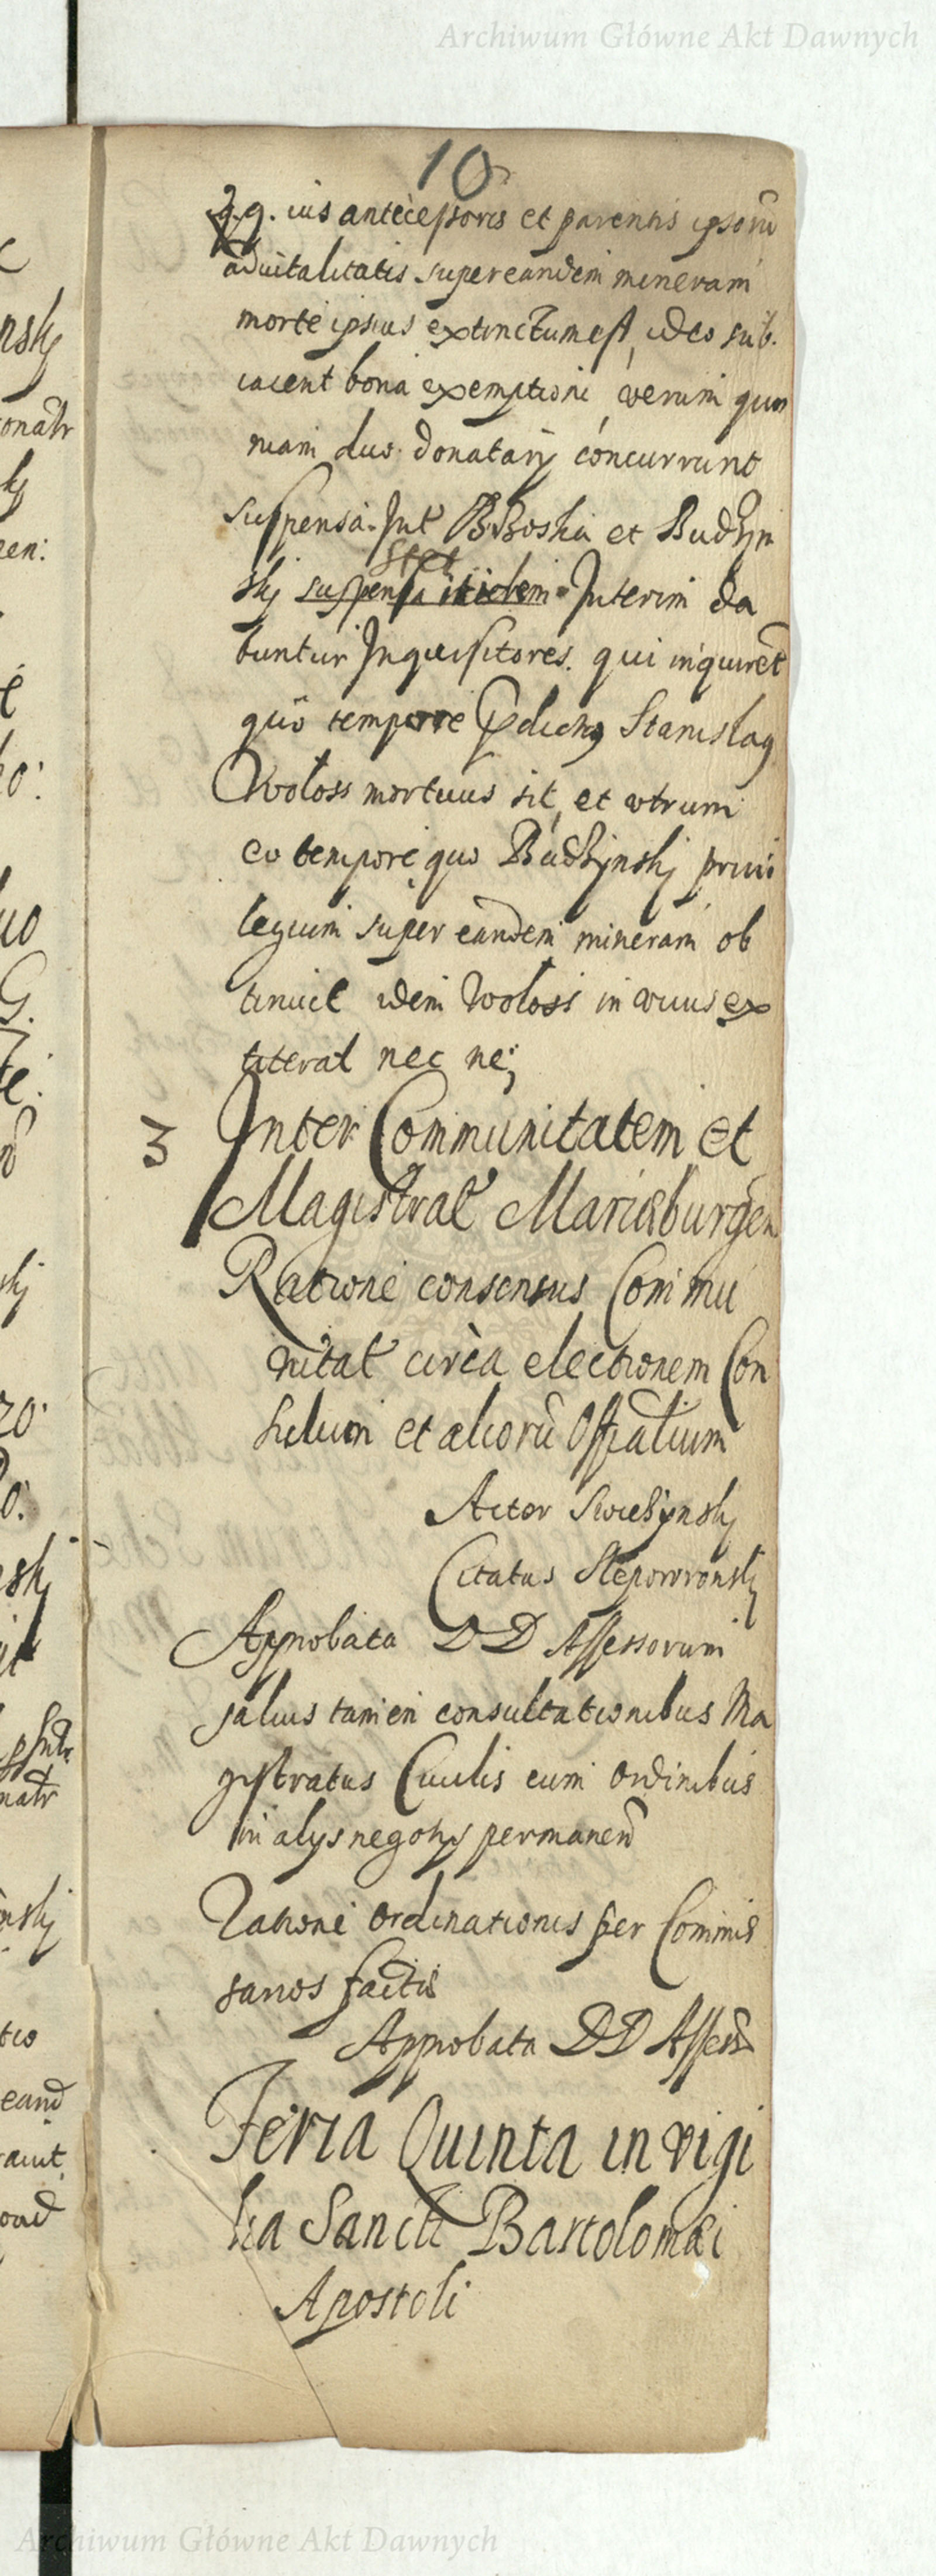 Archiwum Główne Akt Dawnych
10
ius antecessoris et parentis ipsorũ
advitalitatis super eandem mineram
morte ipsius extinctum est, ideo sub-
iacent bona exemptioni, verum quo
niam duo donatarij concurrunt
suspensa. Int Boska et Budzyn
Stet
skj suspensa itidem Interim da
buntur Inquisitores. qui inquirēt
quo tempore Stanislaq
Woloss mortuus sit, et utrum
eo tempore quo Budzynskj privi
legium super eandem mineram ob
tinuit idem Woloss in vivus ex
titerat nec ne;
3 Inter Communitatem et
Magistrat Mariæburgen
Ratione consensus Commu
nitat circa electionem Con
sulum et aliorũ Offialium
Actor Swiezynskj
Citatus Slepowronskj
Approbata DD Assessorum
salvis tamen consultationibus Ma
gistratus Civilis cum ordinibus
in alys negotys permanen
Ratione ordinationis per Commis
sarios factæ
Approbata DD Assess
Feria Quinta in vigi
lia Sancti Bartolomæi
Apostoli
Archiwum Główne Akt Dawnych